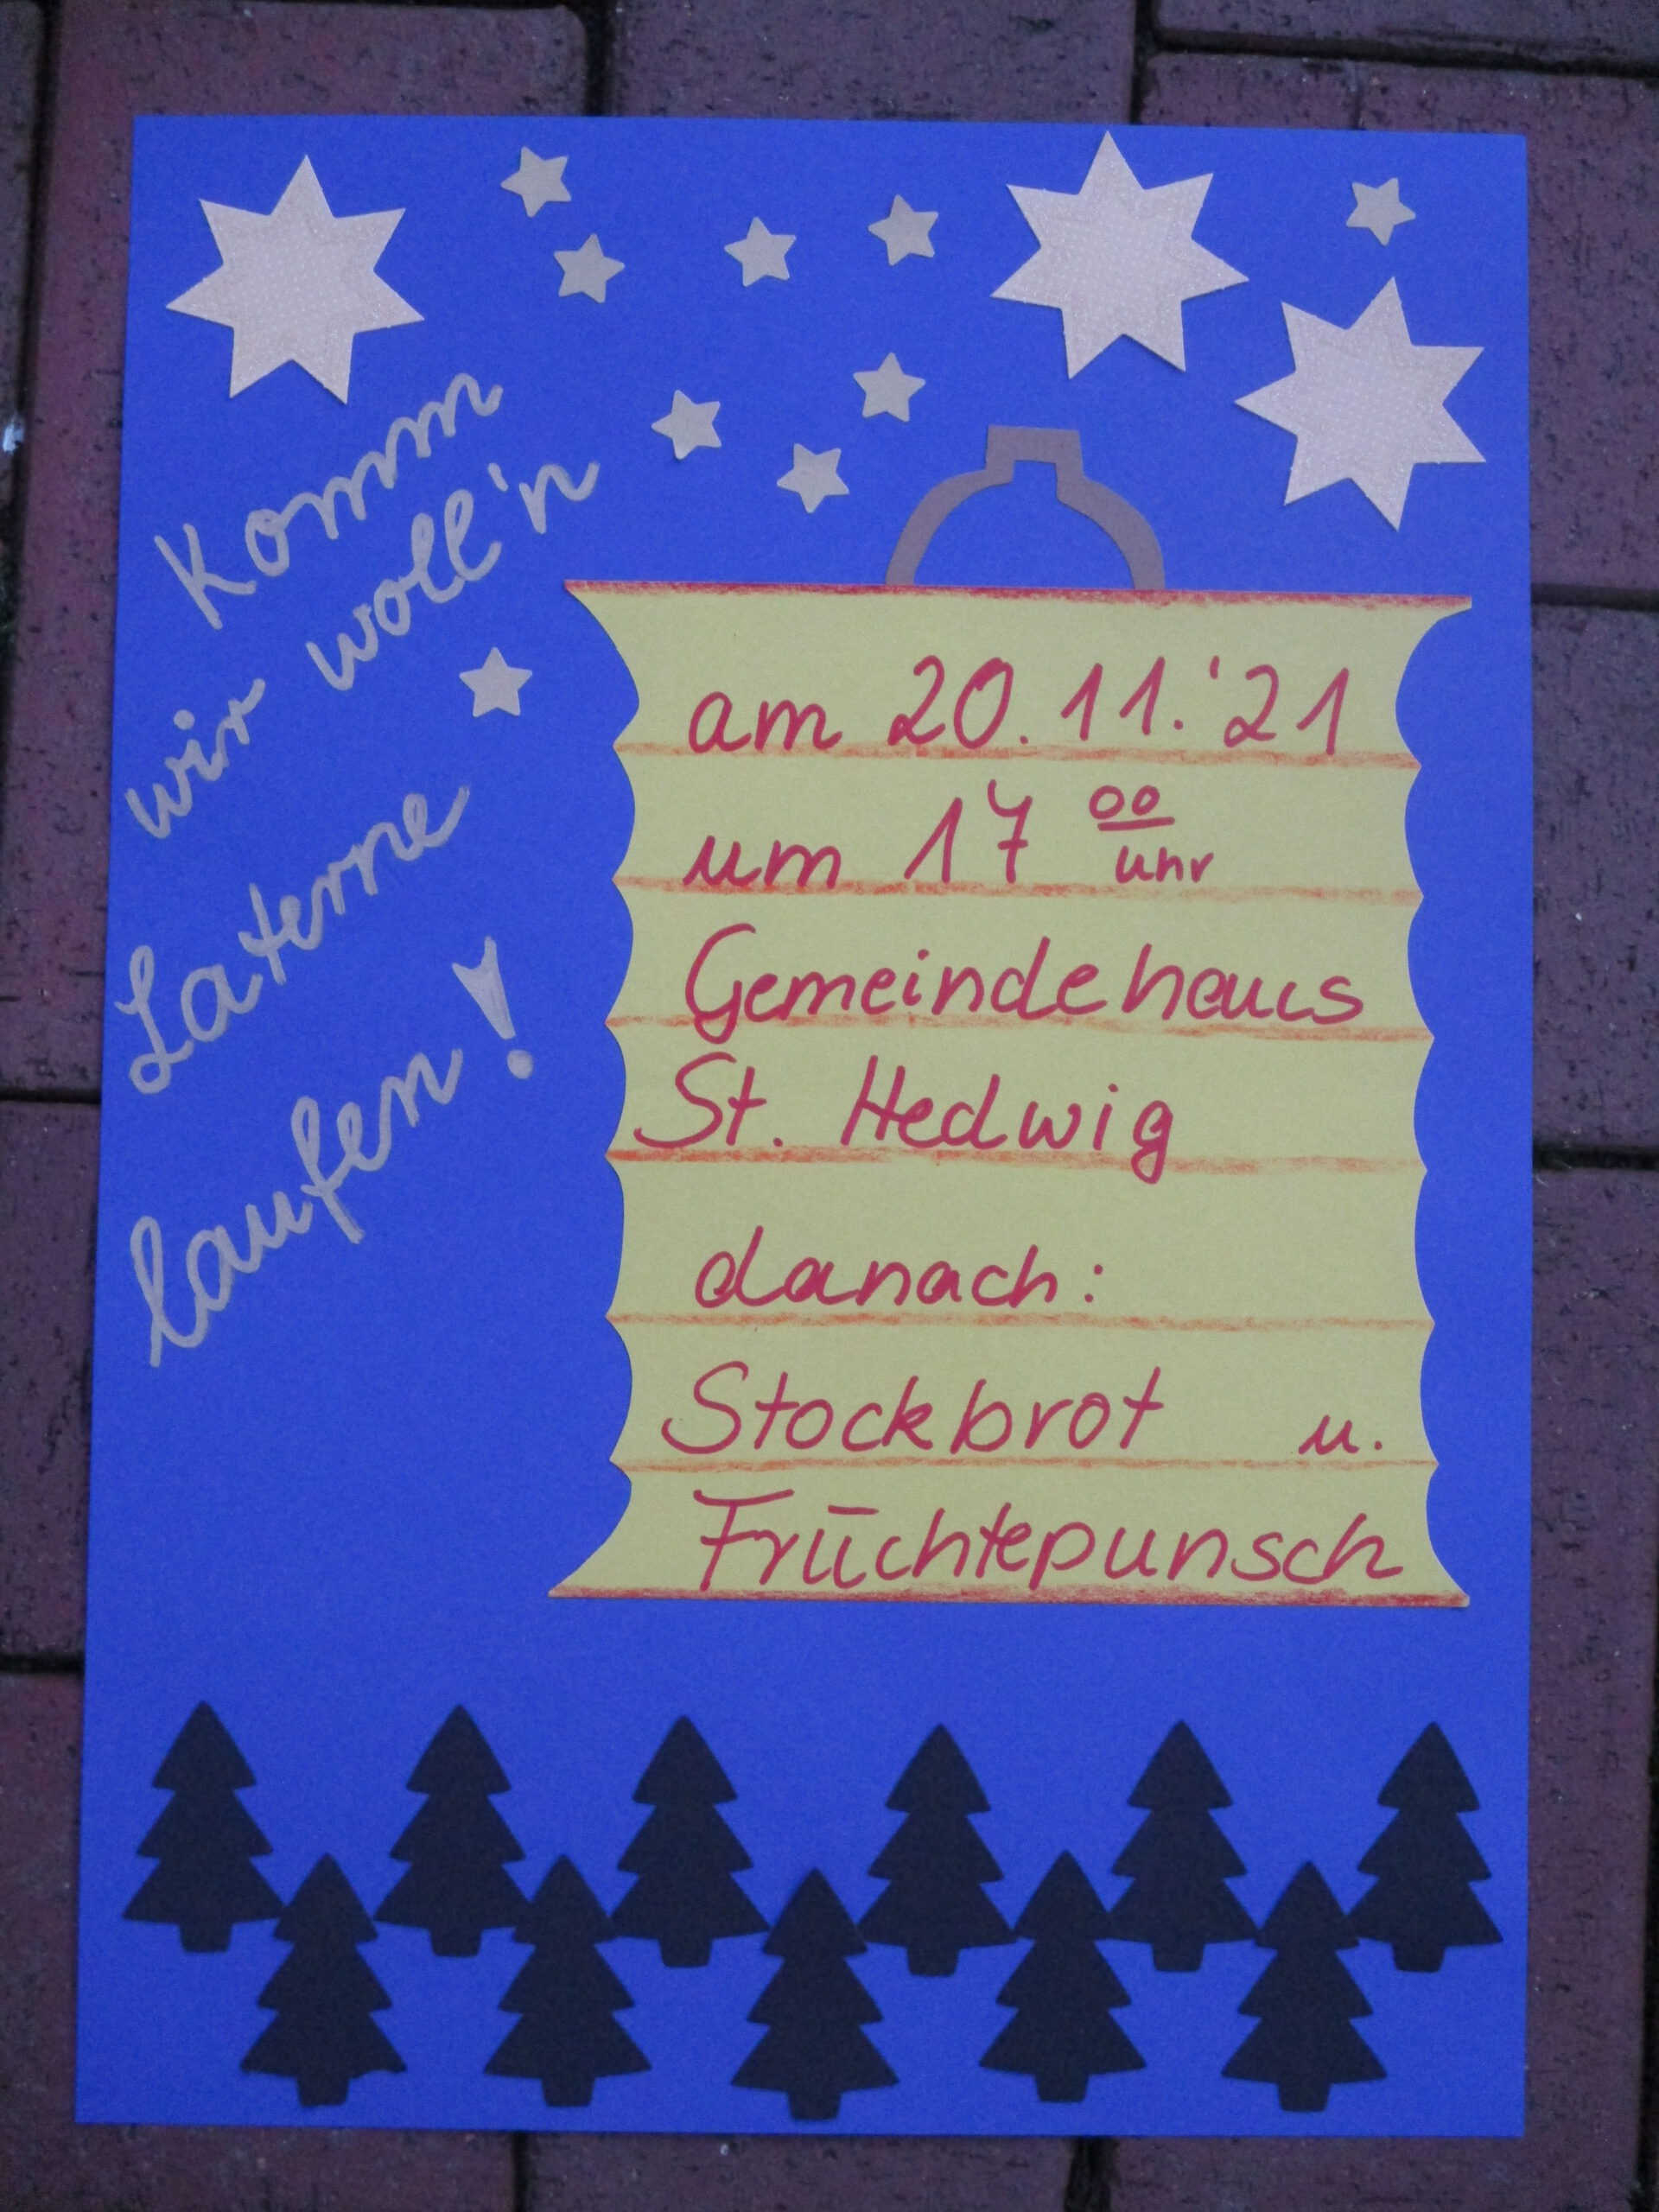 Komm
wir woll'n
Laterne
laufen!
am 20.11.'21
um 17 00 Uhr
Gemeindehaus
St. Hedwig
danach:
Stockbrot u.
Früchtepunsch